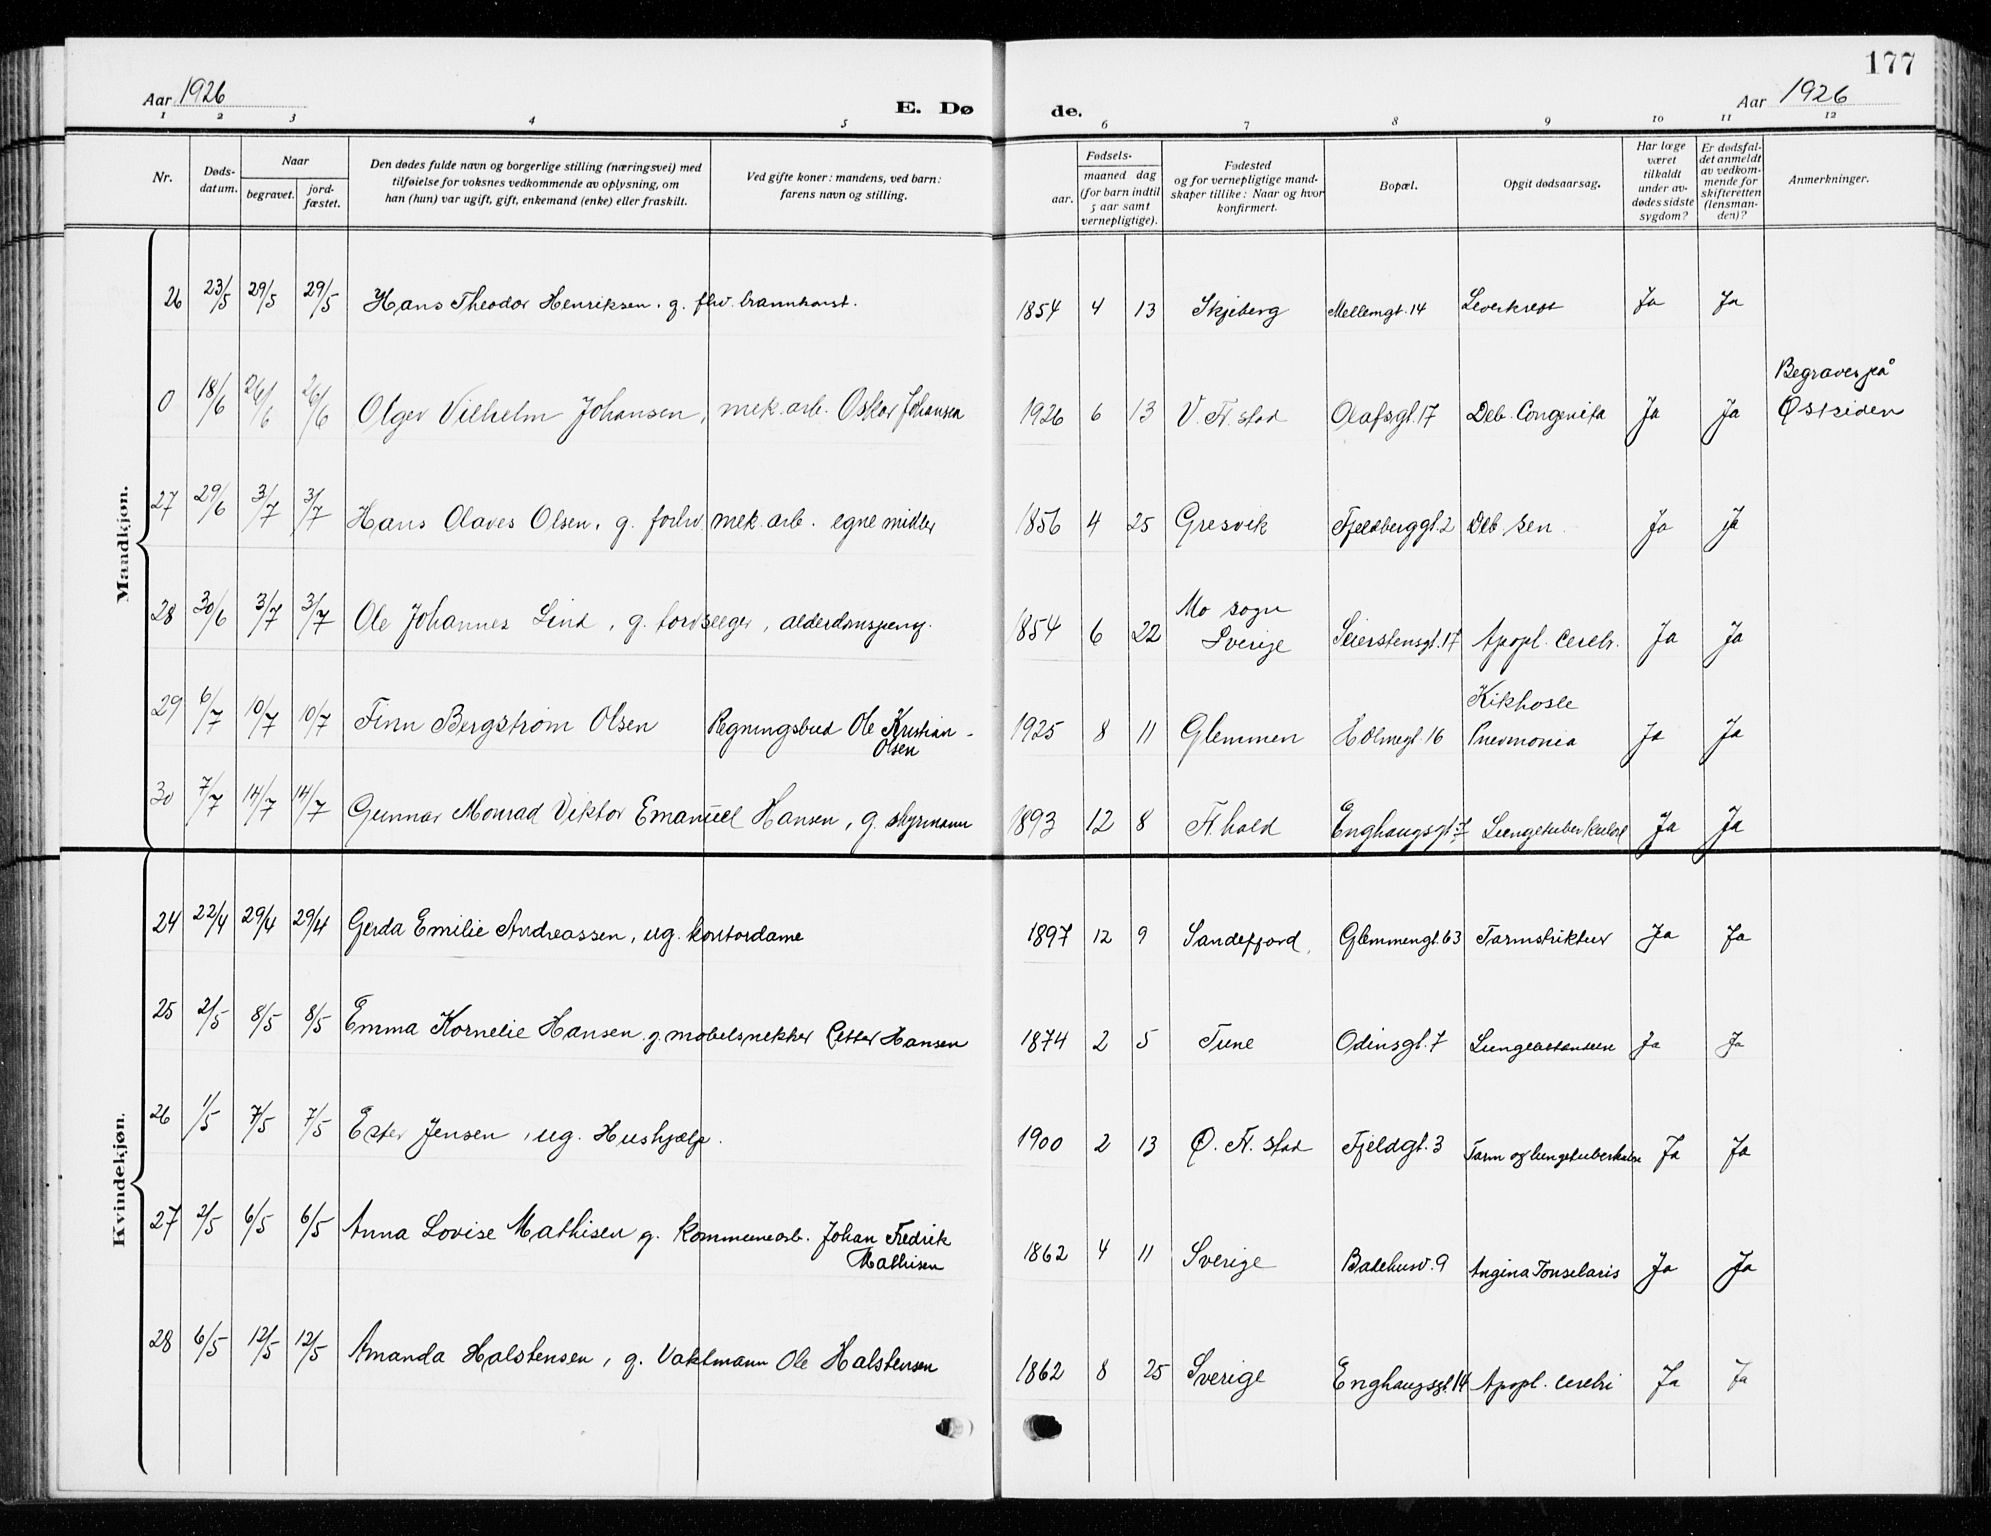 177
Aar 1926
E. Dø
de.
Aar 1926
1 2 3 4 5 6 7 8 9 10 11 12
Nr.
Døds-
datum.
Naar
begravet.
jord-
fæstet.
Den dødes fulde navn og borgerlige stilling (næringsvei) med
tilføielse for voksnes vedkommende av oplysning, om
han (hun) var ugift, gift, enkemand (enke) eller fraskilt.
Ved gifte koner: mandens, ved barn:
farens navn og stilling.
Fødsels-
aar.
maaned dag
(for barn indtil
5 aar samt
vernepligtige).
Fødested
og for vernepligtige mand-
skaper tillike: Naar og hvor
konfirmert.
Bopæl.
Opgit dødsaarsag.
Har læge
været
tilkaldt
under av-
dødes sidste
sygdom?
Er dødsfal-
det anmeldt
av vedkom-
mende for
skifteretten
(lensman-
den)?
Anmerkninger.
Mandkjøn.
26 23/5 29/5 29/5 Hans Theodor Henriksen. g. fhv. brannkonst. 1854 4 13 Skjeberg Mellemgt. 14 Leverkreft Ja Ja
0 18/6 26/6 26/6 Olger Vilhelm Johansen, mek. arb. Oskar Johansen 1926 6 13 V. Fr. stad Olafsgt. 17 Deb. Congenita Ja Ja Begraves på
Østsiden
27 29/6 3/7 3/7 Hans Olaves Olsen, g. forhv. mek. arb. egne midler 1856 4 25 Gresvik Fjeldberggt. 2 Deb. sen. Ja Ja
28 30/6 3/7 3/7 Ole Johannes Lind, g. , 1854 6 22 Mo sogn
Sverige Seierstensgt. 17 Apopl. cerebr. Ja Ja
29 6/7 10/7 10/7 Finn Bergstrøm Olsen Regningsbud Ole Kristian
Olsen 1925 8 11 Glemmen Holmegt. 16 Kikhoste
Pnevmonia Ja Ja
30 7/7 14/7 14/7 Gunnar Monrad Viktor Emanuel Hansen, g. styrmann 1893 12 8 Fr. hald Enghaugsgt. 7 Lungetuberkulose Ja Ja
Kvindekjøn.
24 22/4 29/4 29/4 Gerda Emilie Andreassen, ug. kontordame 1897 12 9 Sandefjord Glemmengt. 63 Tarmstriktur Ja Ja
25 2/5 8/5 8/5 Emma Kornelie Hansen g. møbelsnekker Petter Hansen 1874 2 5 Tune Odinsgt. 7 Ja Ja
26 1/5 7/5 7/5 Ester Jensen, ug. Hushjælp. 1900 2 13 Ø. Fr. stad Fjeldgt. 3 Tarm og lungetuberkulose Ja Ja
27 2/5 6/5 6/5 Anna Lovise Mathisen g. kommunearb. Johan Fredrik
Mathisen 1862 4 11 Sverige Badehusv. 9 Angina Tonselaris Ja Ja
28 6/5 12/5 12/5 Amanda Halstensen, g. Vaktmann Ole Halstensen 1862 8 25 Sverige Enghaugsgt. 14 Apopl. cerebri Ja Ja